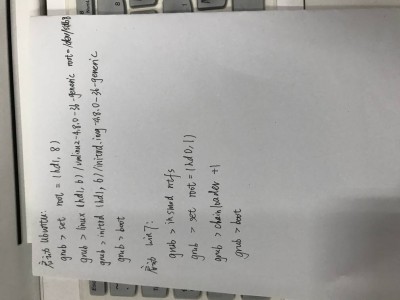 启动 Ubuntu:
grub > set root = (hd1, 8)
grub > linux (hd1, 6) /vmlinuz-4.8.0-36-generic root=/dev/sdb8
grub > initrd (hd1, 6) /initrd.img-4.8.0-36-generic
grub > boot
启动 win7:
grub > insmod ntfs
grub > set root = (hd0, 1)
grub > chainloader +1
grub > boot